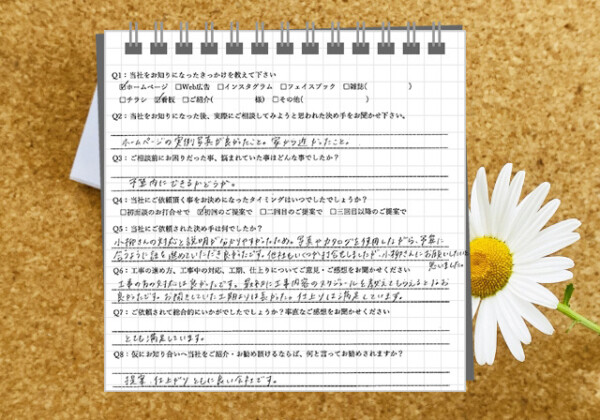 Q1：当社をお知りになったきっかけを教えて下さい
☑ホームページ □Web広告 □インスタグラム □フェイスブック □雑誌（ ）
□チラシ ☑看板 □ご紹介（ 様） □その他（ ）
Q2：当社をお知りになった後、実際にご相談してみようと思われた決め手をお聞かせ下さい。
ホームページの実例写真が良かったこと。家から近かったこと。
Q3：ご相談前にお困りだった事、悩まれていた事はどんな事でしたか？
予算内にできるかどうか。
Q4：当社にご依頼頂く事をお決めになったタイミングはいつでしたでしょうか？
□初面談のお打合せで ☑初回のご提案で □二回目のご提案で □三回目以降のご提案で
Q5：当社に依頼された決め手は何でしたか？
小柳さんの対応と説明が分かりやすかったため。写真やカタログを使用しながら、予算に
合うように話を進めていただき良かったです。他社もいくつか打合せしましたが、小柳さんにお願いしたいと
思いました。
Q6：工事の進め方、工事中の対応、工期、仕上りについてご意見・ご感想をお聞かせください
工事の方の対応は良かったです。 に工事内容のスケジュールを教えてもらえるとなお
良かったです。お聞きしていた工期よりは長かった。仕上りは満足しています。
Q7：ご依頼されて総合的にいかがでしたでしょうか？率直なご感想をお聞かせください
とても満足しています。
Q8：仮にお知り合いへ当社をご紹介・お勧め頂けるならば、何と言ってお勧めされますか？
提案、仕上がりともに良い会社です。